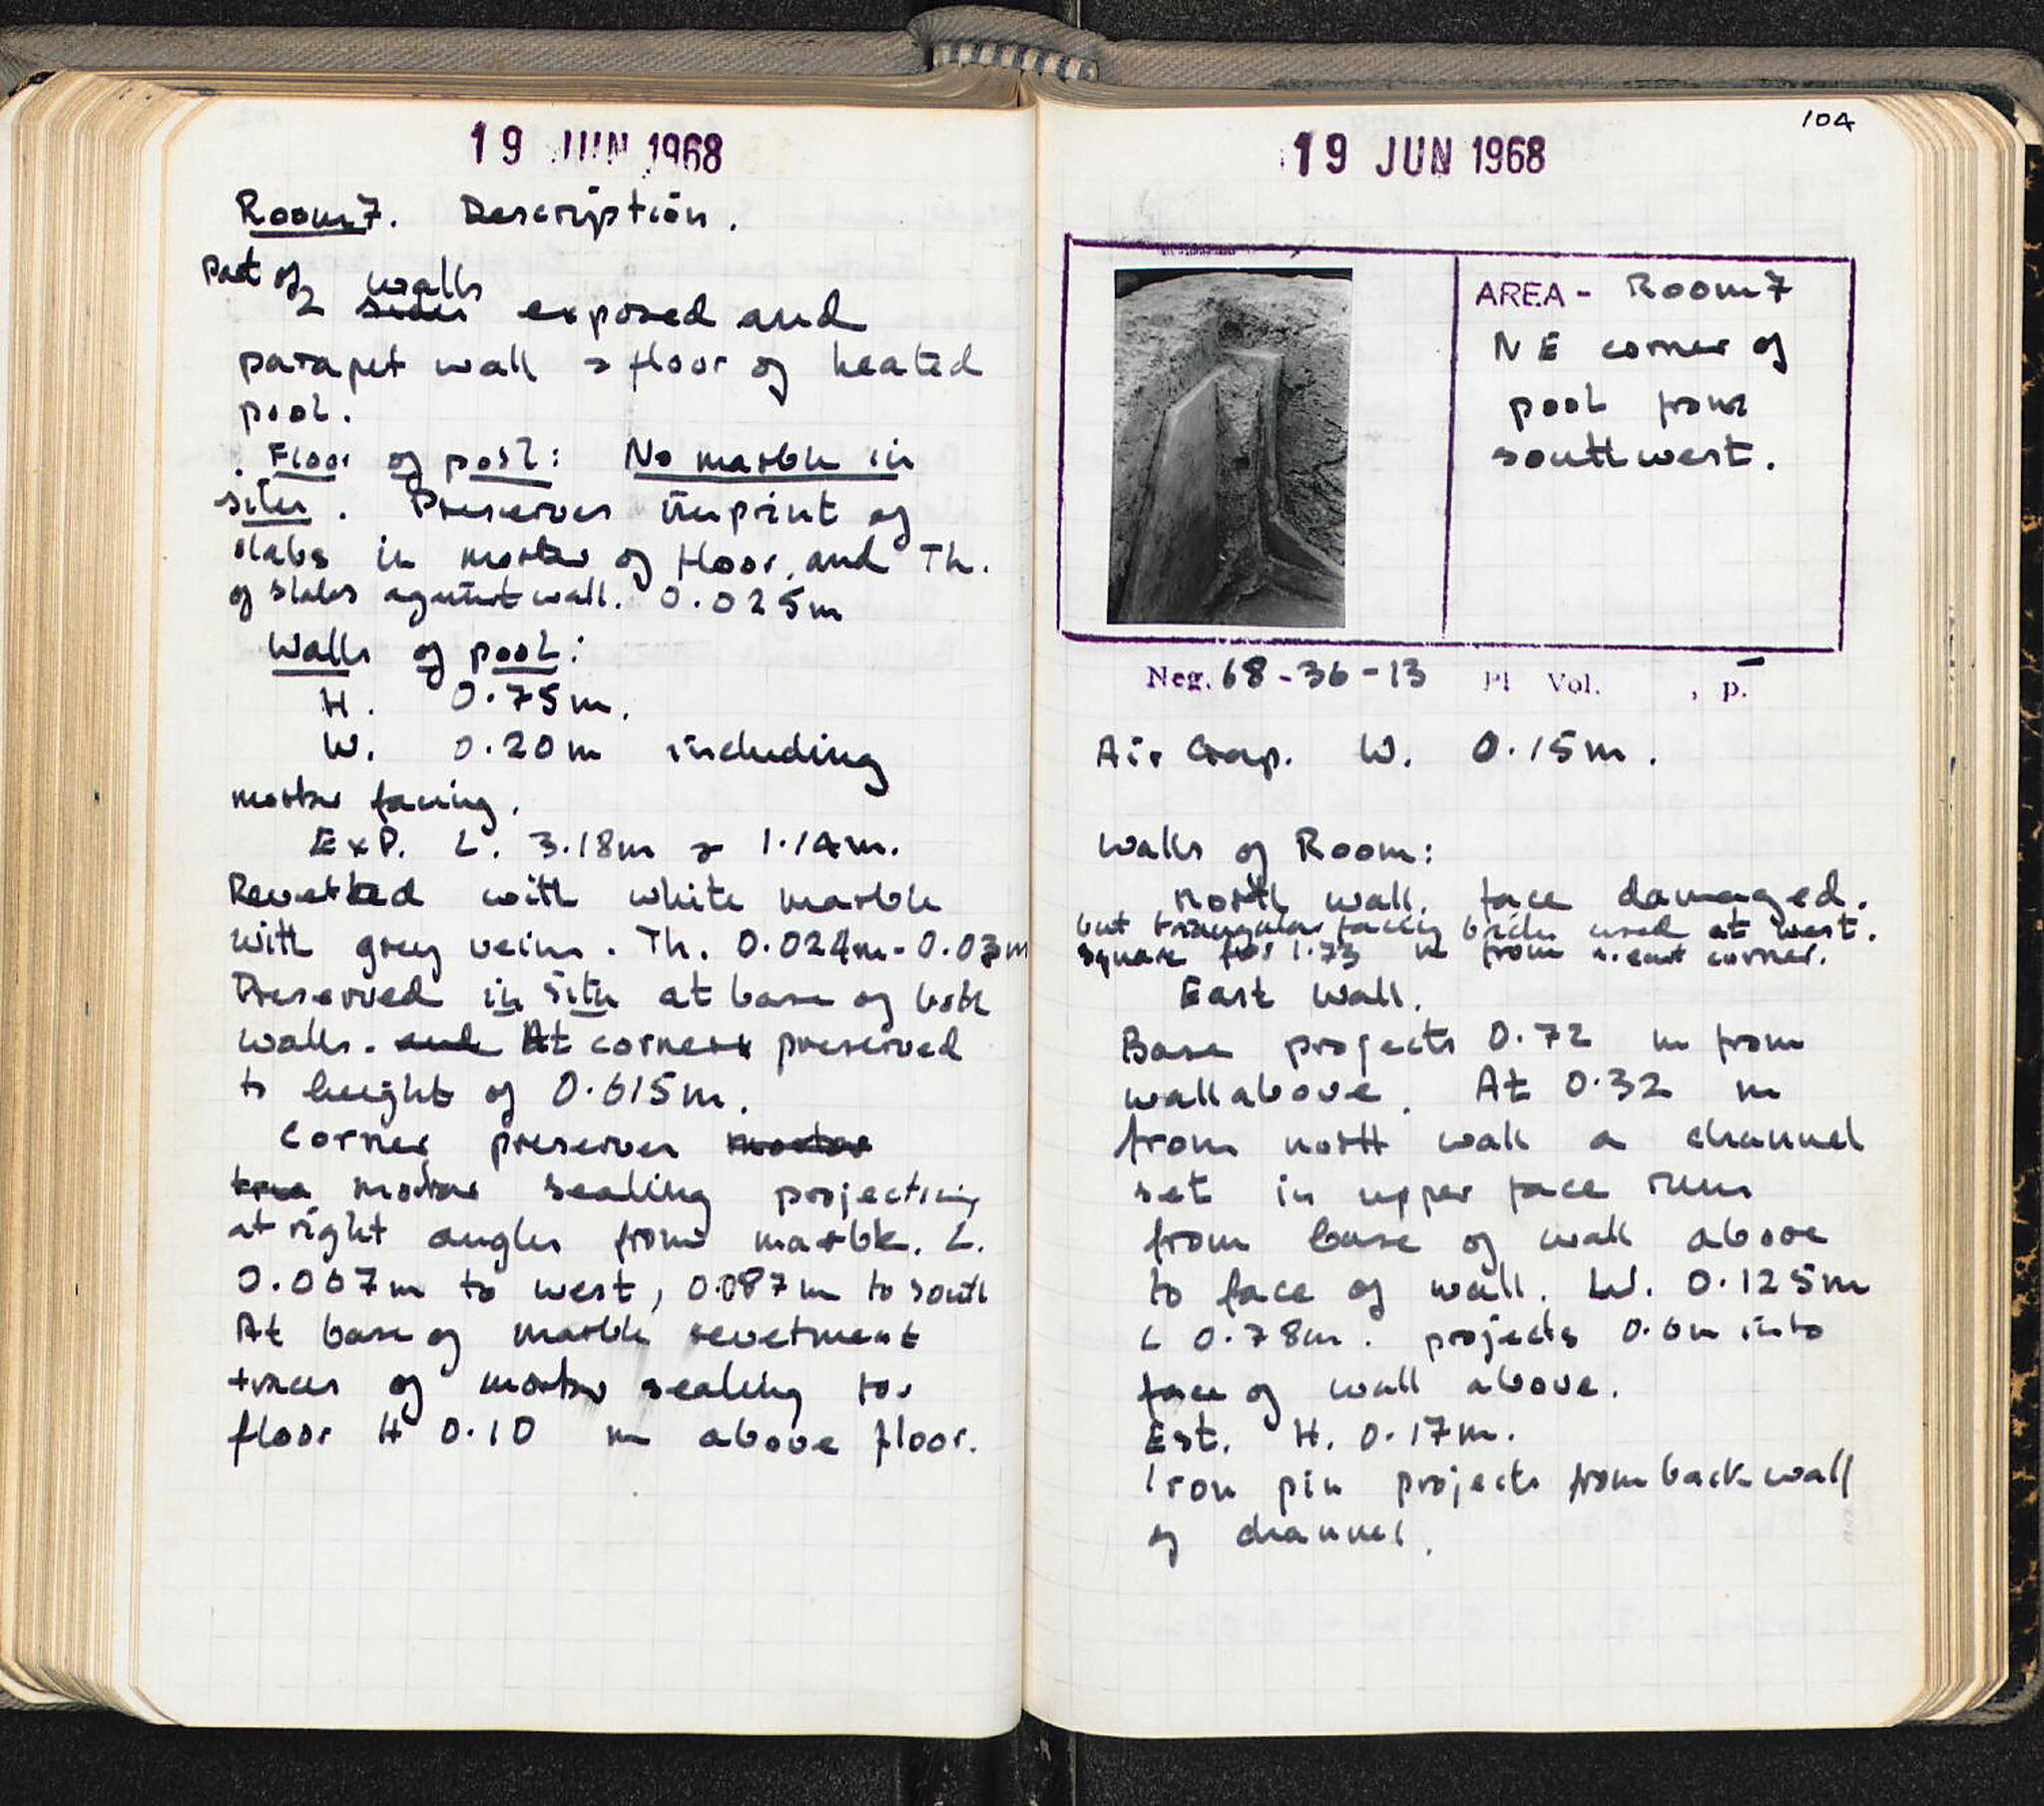 19 JUN 1968
Room 7. Description.
Part of walls
2 sides exposed and
parapet wall & floor of heated
pool.
Floor of pool: No marble in
situ. Preserves imprint of
slabs in mortar of floor, and Th.
of slabs against wall. 0.025m
Walls of pool:
H. 0.75m.
W. 0.20m including
mortar facing.
Exp. L. 3.18m & 1.14m.
Revetted with white marble
with grey veins. Th. 0.024m-0.03m
Preserved in situ at base of both
walls. and At corner preserved
to height of 0.615m.
Corner preserves mortar
mortar sealing projecting
at right angles from marble. L.
0.067m to west, 0.087m to south
At base of marble revetment
traces of mortar sealing for
floor H 0.10 m above floor.
104
19 JUN 1968
AREA - Room 7
NE corner of
pool from
southwest.
Neg. 68-36-13 Pl Vol. , p. -
Air Gap. W. 0.15m.
Walls of Room:
North wall. face damaged.
but triangular facing bricks used at west.
square for 1.73 m from n. east corner.
East Wall.
Base projects 0.72 m from
wall above. At 0.32 m
from north wall a channel
set in upper face runs
from base of wall above
to face of wall. W. 0.125m
L 0.78m. projects 0.6m into
face of wall above.
Est. H. 0.17m.
Iron pin projects from back wall
of channel.